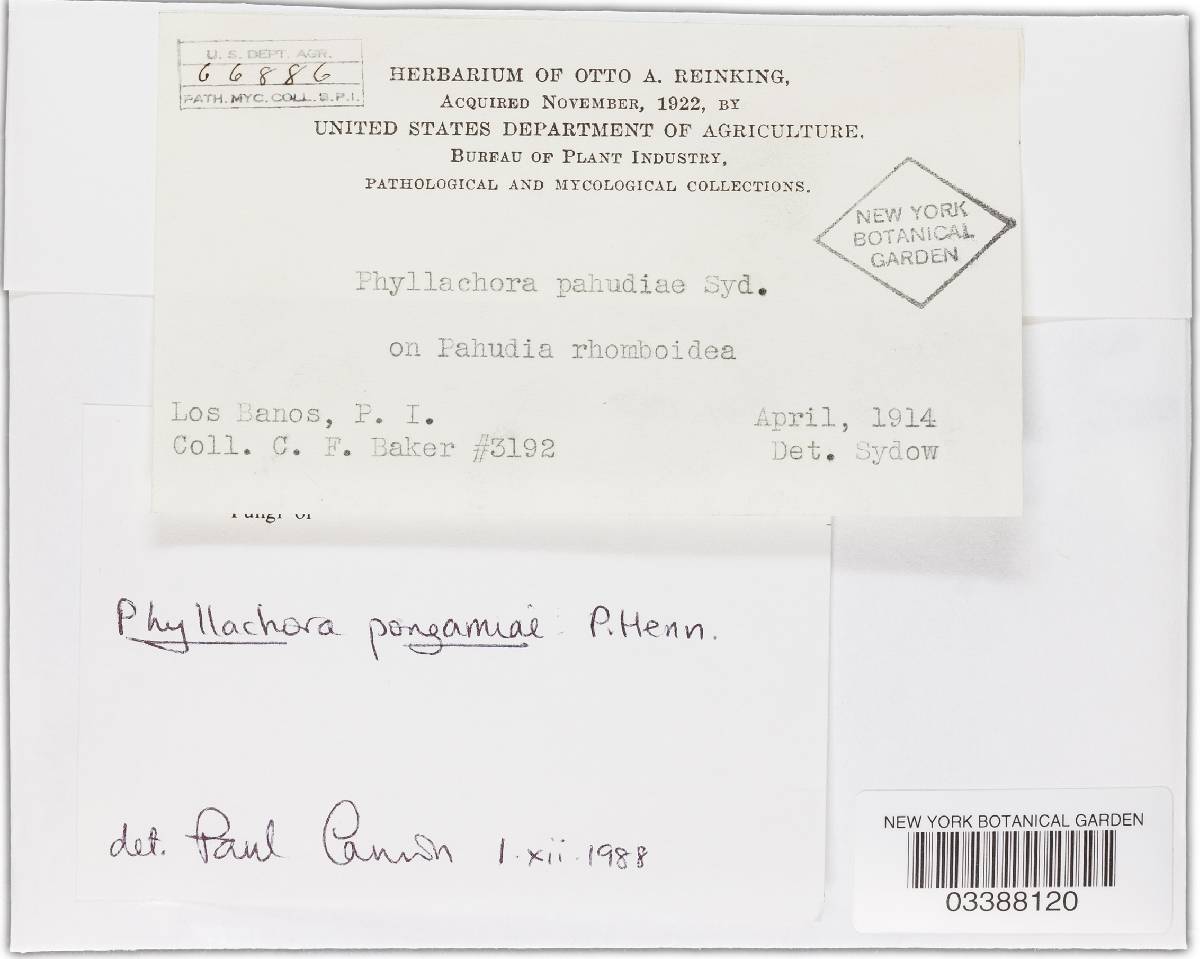 U. S. DEPT. AGR.
66886
PATH. MYC. COLL. B.P.I.
HERBARIUM OF OTTO A. REINKING,
ACQUIRED NOVEMBER, 1922, BY
UNITED STATES DEPARTMENT OF AGRICULTURE,
BUREAU OF PLANT INDUSTRY,
PATHOLOGICAL AND MYCOLOGICAL COLLECTIONS.
NEW YORK
BOTANICAL
GARDEN
Phyllachora pahudiae Syd.
on Pahudia rhomboidea
Los Banos, P. I. April, 1914
Coll. C. F. Baker #3192 Det. Sydow
Fungi of
Phyllachora pongamiae P.Henn.
det. Paul Cannon 1.xii.1988
NEW YORK BOTANICAL GARDEN
03388120